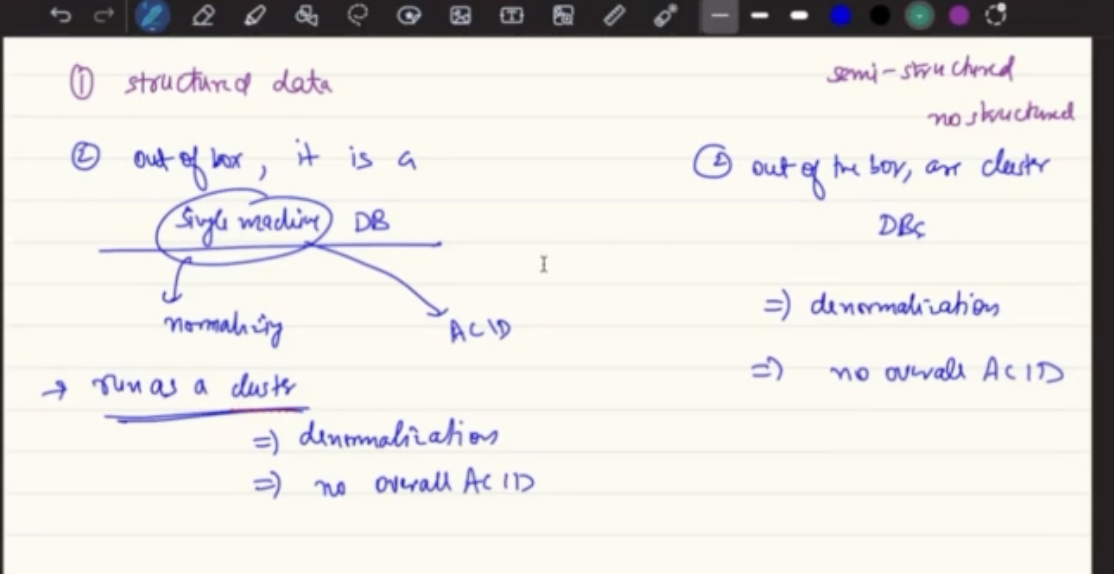 ① structured data
② out of box, it is a
single machine DB
normalizing
ACID
→ run as a cluster
=) denormalization
=) no overall ACID
semi-structured
no structured
② out of the box, are cluster
DBs
=) denormalization
=) no overall ACID